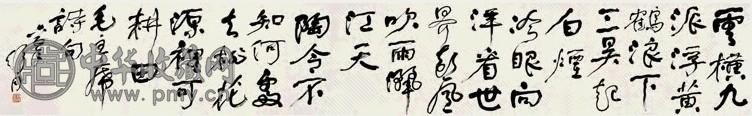 雲橫九
派浮黄
鶴浪下
三吴起
白煙
冷眼向
洋看世
界热風
吹雨灑
江天
陶令不
知何處
去桃花
源裡可
耕田
毛主席
詩句
中华收藏网